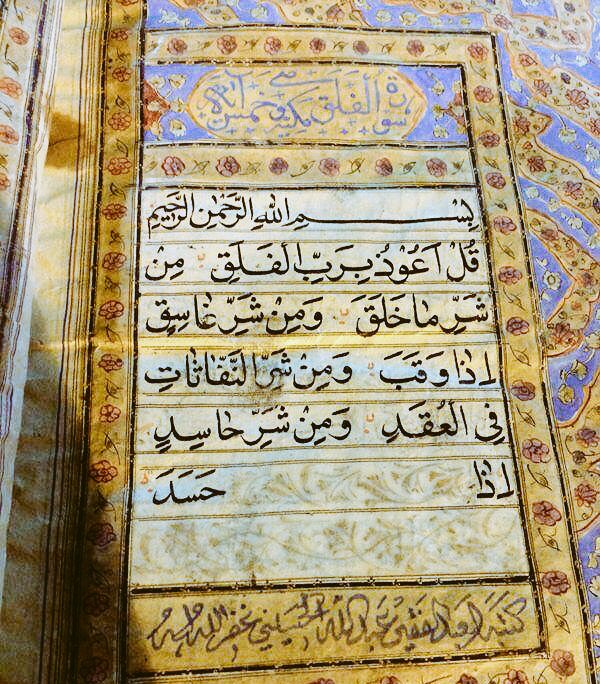 سورة الفلق وهي خمس آيات
بِسْمِ اللهِ الرَّحْمٰنِ الرَّحِيمِ
قُلْ اَعُوْذُ بِرَبِّ الْفَلَقِ مِنْ
شَرِّ مَا خَلَقَ وَمِنْ شَرِّ غَاسِقٍ
اِذَا وَقَبَ وَمِنْ شَرِّ النَّفَّاثَاتِ
فِي الْعُقَدِ وَمِنْ شَرِّ حَاسِدٍ
اِذَا حَسَدَ
كتبه الفقير عبدالله الحسيني غفر الله